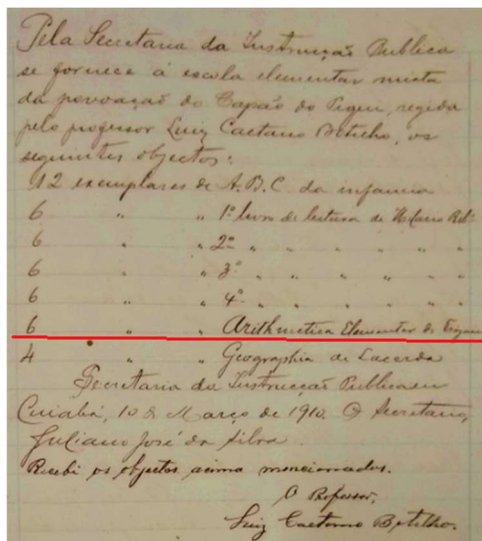 Pela Secretaria da Instrucção Publica
se fornece á escola elementar mixta
da povoação do Capão do Piqui, regida
pelo professor Luiz Caetano Botelho, os
seguintes objectos:
12 exemplares de A.B.C. da infancia
6 " " 1º livro de leitura de Hilario Rib.
6 " " 2º " " " " "
6 " " 3º " " " " "
6 " " 4º " " " " "
6 " " Arithmetica Elementar de Trajano
4 " " Geographia de Lacerda
Secretaria da Instrucção Publica em
Cuiabá, 10 de Março de 1910. O Secretario,
Juliano José da Silva.
Recebi os objectos acima mencionados.
O Professor,
Luiz Caetano Botelho.